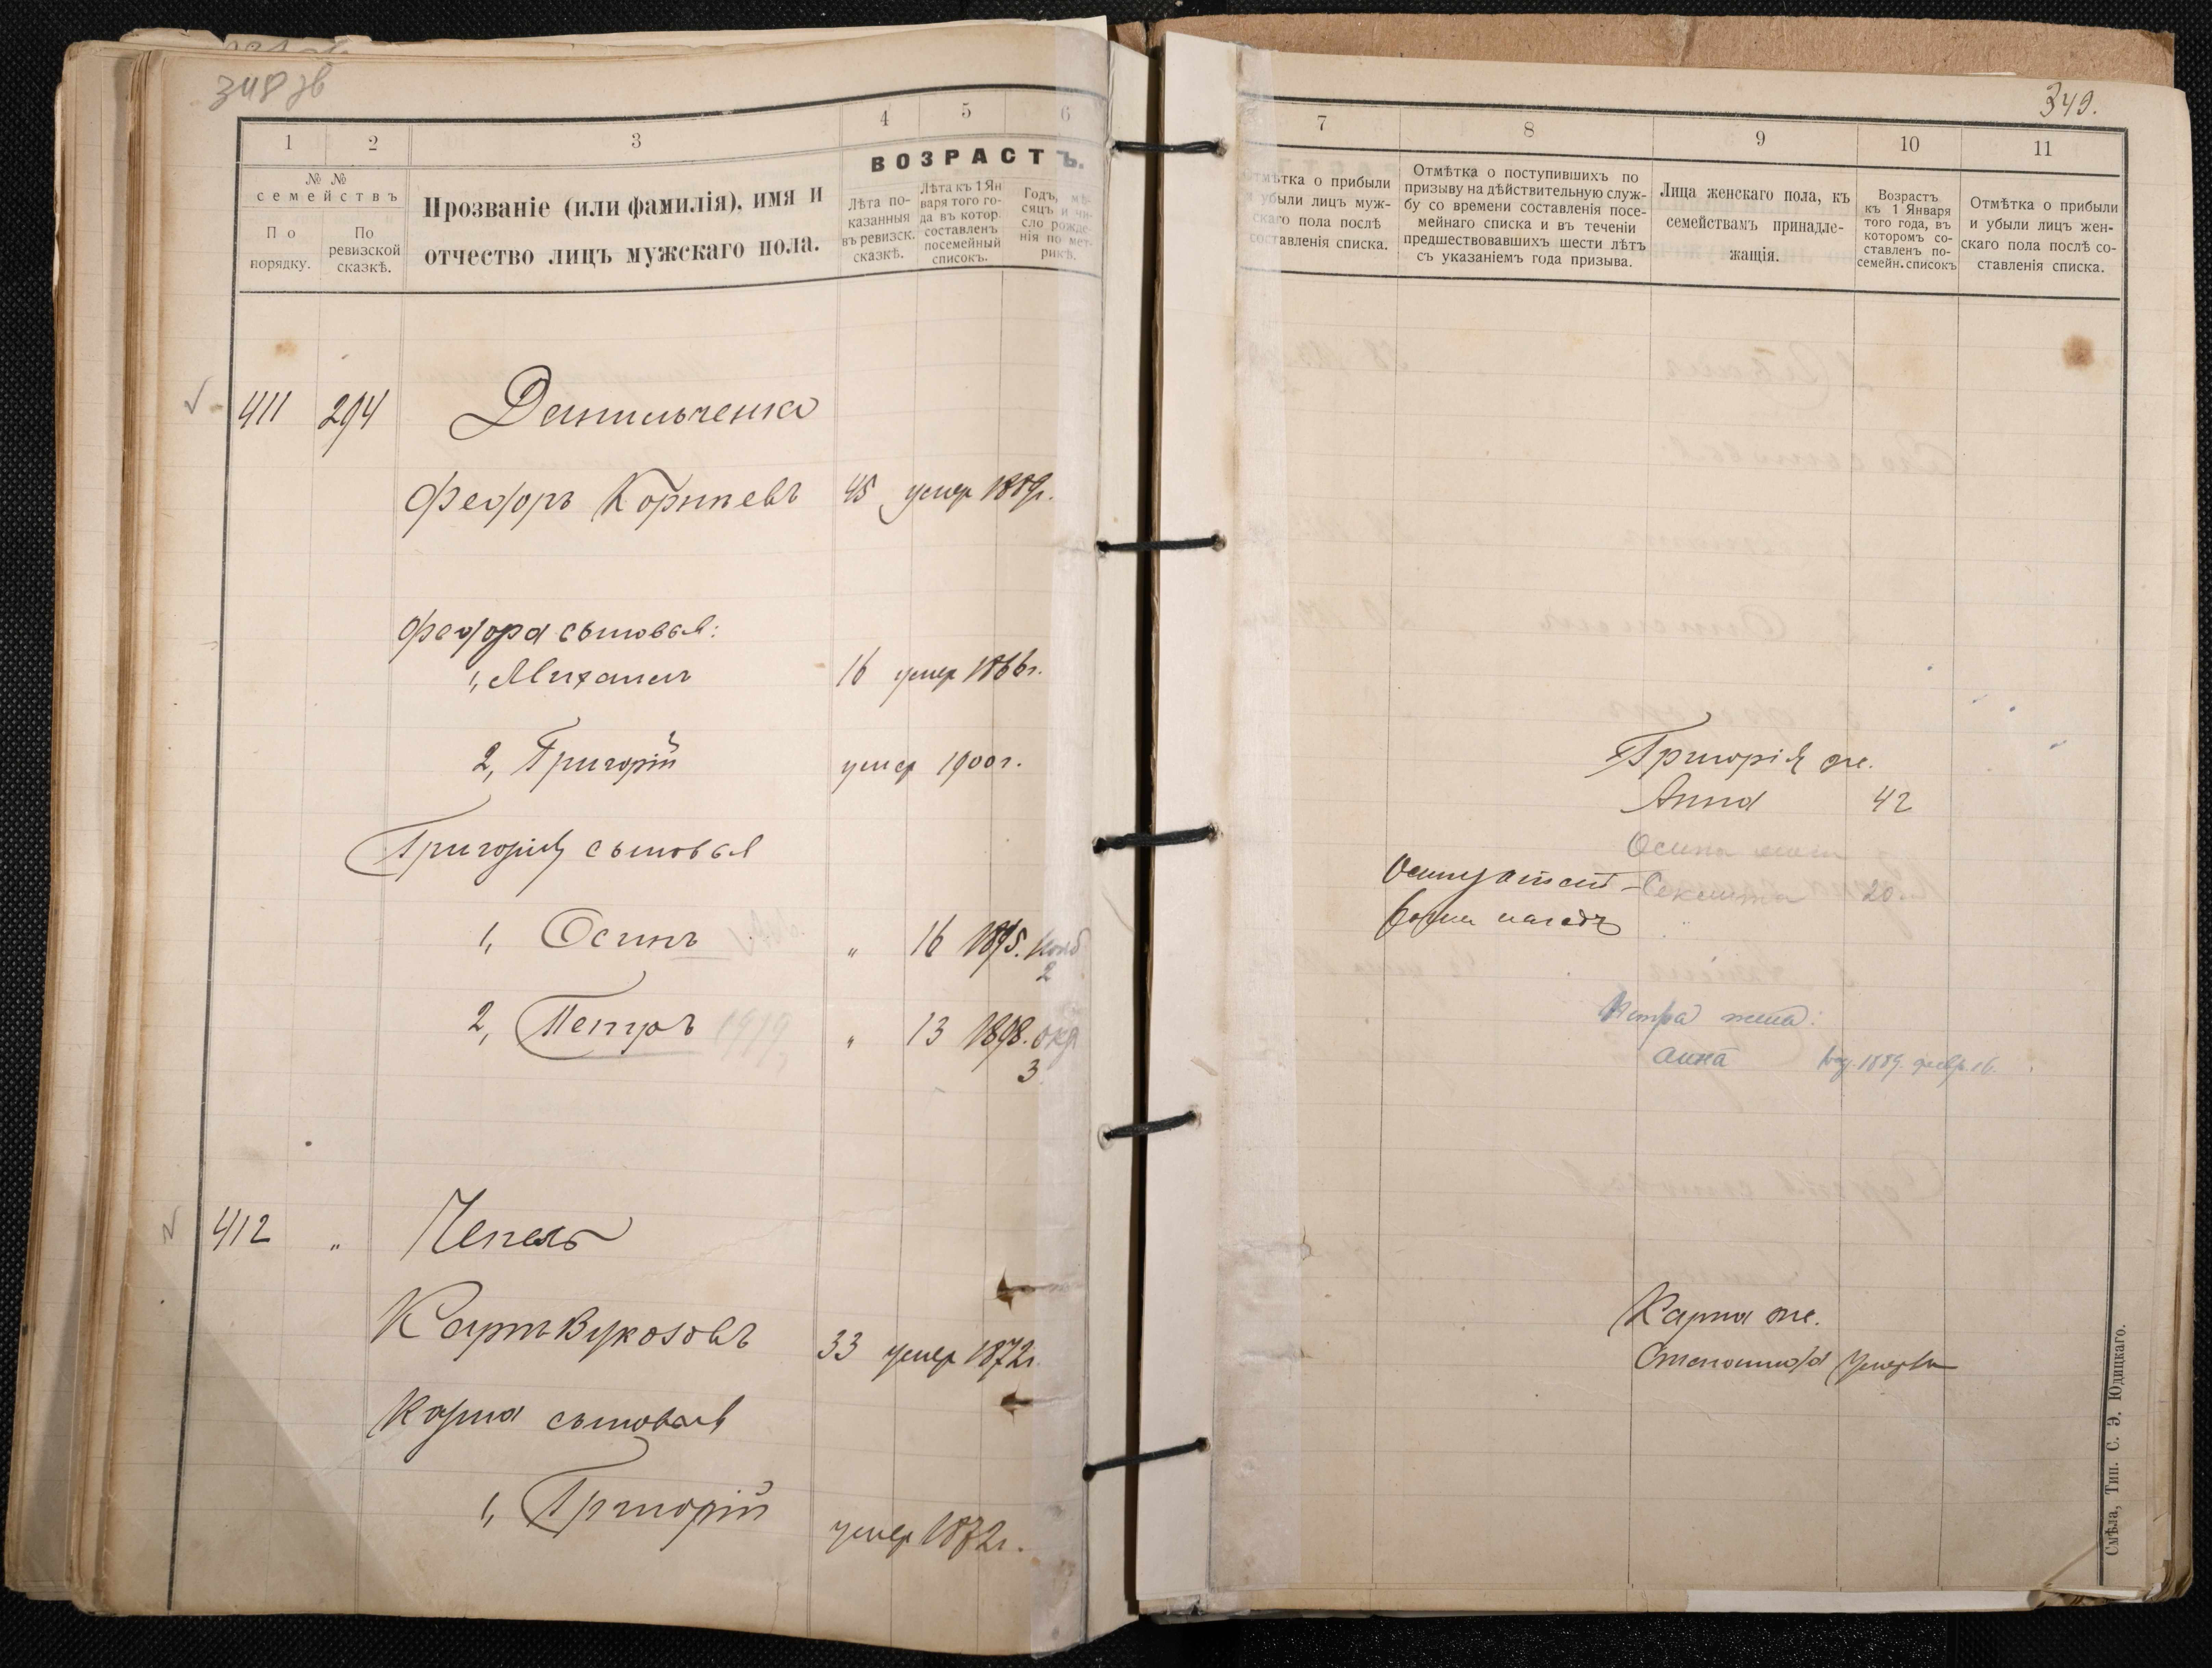 348 зв
1
2
3
4
5
6
№ №
семействъ
По порядку.
По ревизской сказкѣ.
Прозваніе (или фамилія), имя и
отчество лицъ мужскаго пола.
ВОЗРАСТЪ.
Лѣта по-
казанныя
въ ревизск.
сказкѣ.
Лѣта къ 1 Ян
варя того го-
да въ котор.
составленъ
посемейный
списокъ.
Годъ, мѣ-
сяцъ и чи-
сло рожде-
нія по мет-
рикѣ.
411 294 Данильченко
Федоръ Корнѣевъ 45 умер 1889г.
Федора сыновья:
1, Михаилъ 16 умер 1866г.
2, Григорій умер 1900г.
Григорія сыновья
1, Осипъ " 16 1895. Нояб
2
2, Петръ 1919 " 13 1898. Окт
3
412 " Чепель
Карпъ Вуколовъ 33 умер 1872г.
Карпа сыновья
1, Григорій умер 1872г.
349.
7
8
9
10
11
Отмѣтка о прибыли
и убыли лицъ муж-
скаго пола послѣ
составленія списка.
Отмѣтка о поступившихъ по
призыву на дѣйствительную служ-
бу со времени составленія посе-
мейнаго списка и въ теченіи
предшествовавшихъ шести лѣтъ
съ указаніемъ года призыва.
Лица женскаго пола, къ
семействамъ принадле-
жащія.
Возрастъ
къ 1 Января
того года, въ
которомъ со-
ставленъ по-
семейн. списокъ
Отмѣтка о прибыли
и убыли лицъ жен-
скаго пола послѣ со-
ставленія списка.
Григорія же.
Анна 42
Осипа жена
20
Петра жена:
Анна род. 1889. февр. 16.
Карпа же.
Степанида умерла
Смѣла, Тип. С. Э. Юдицкаго.